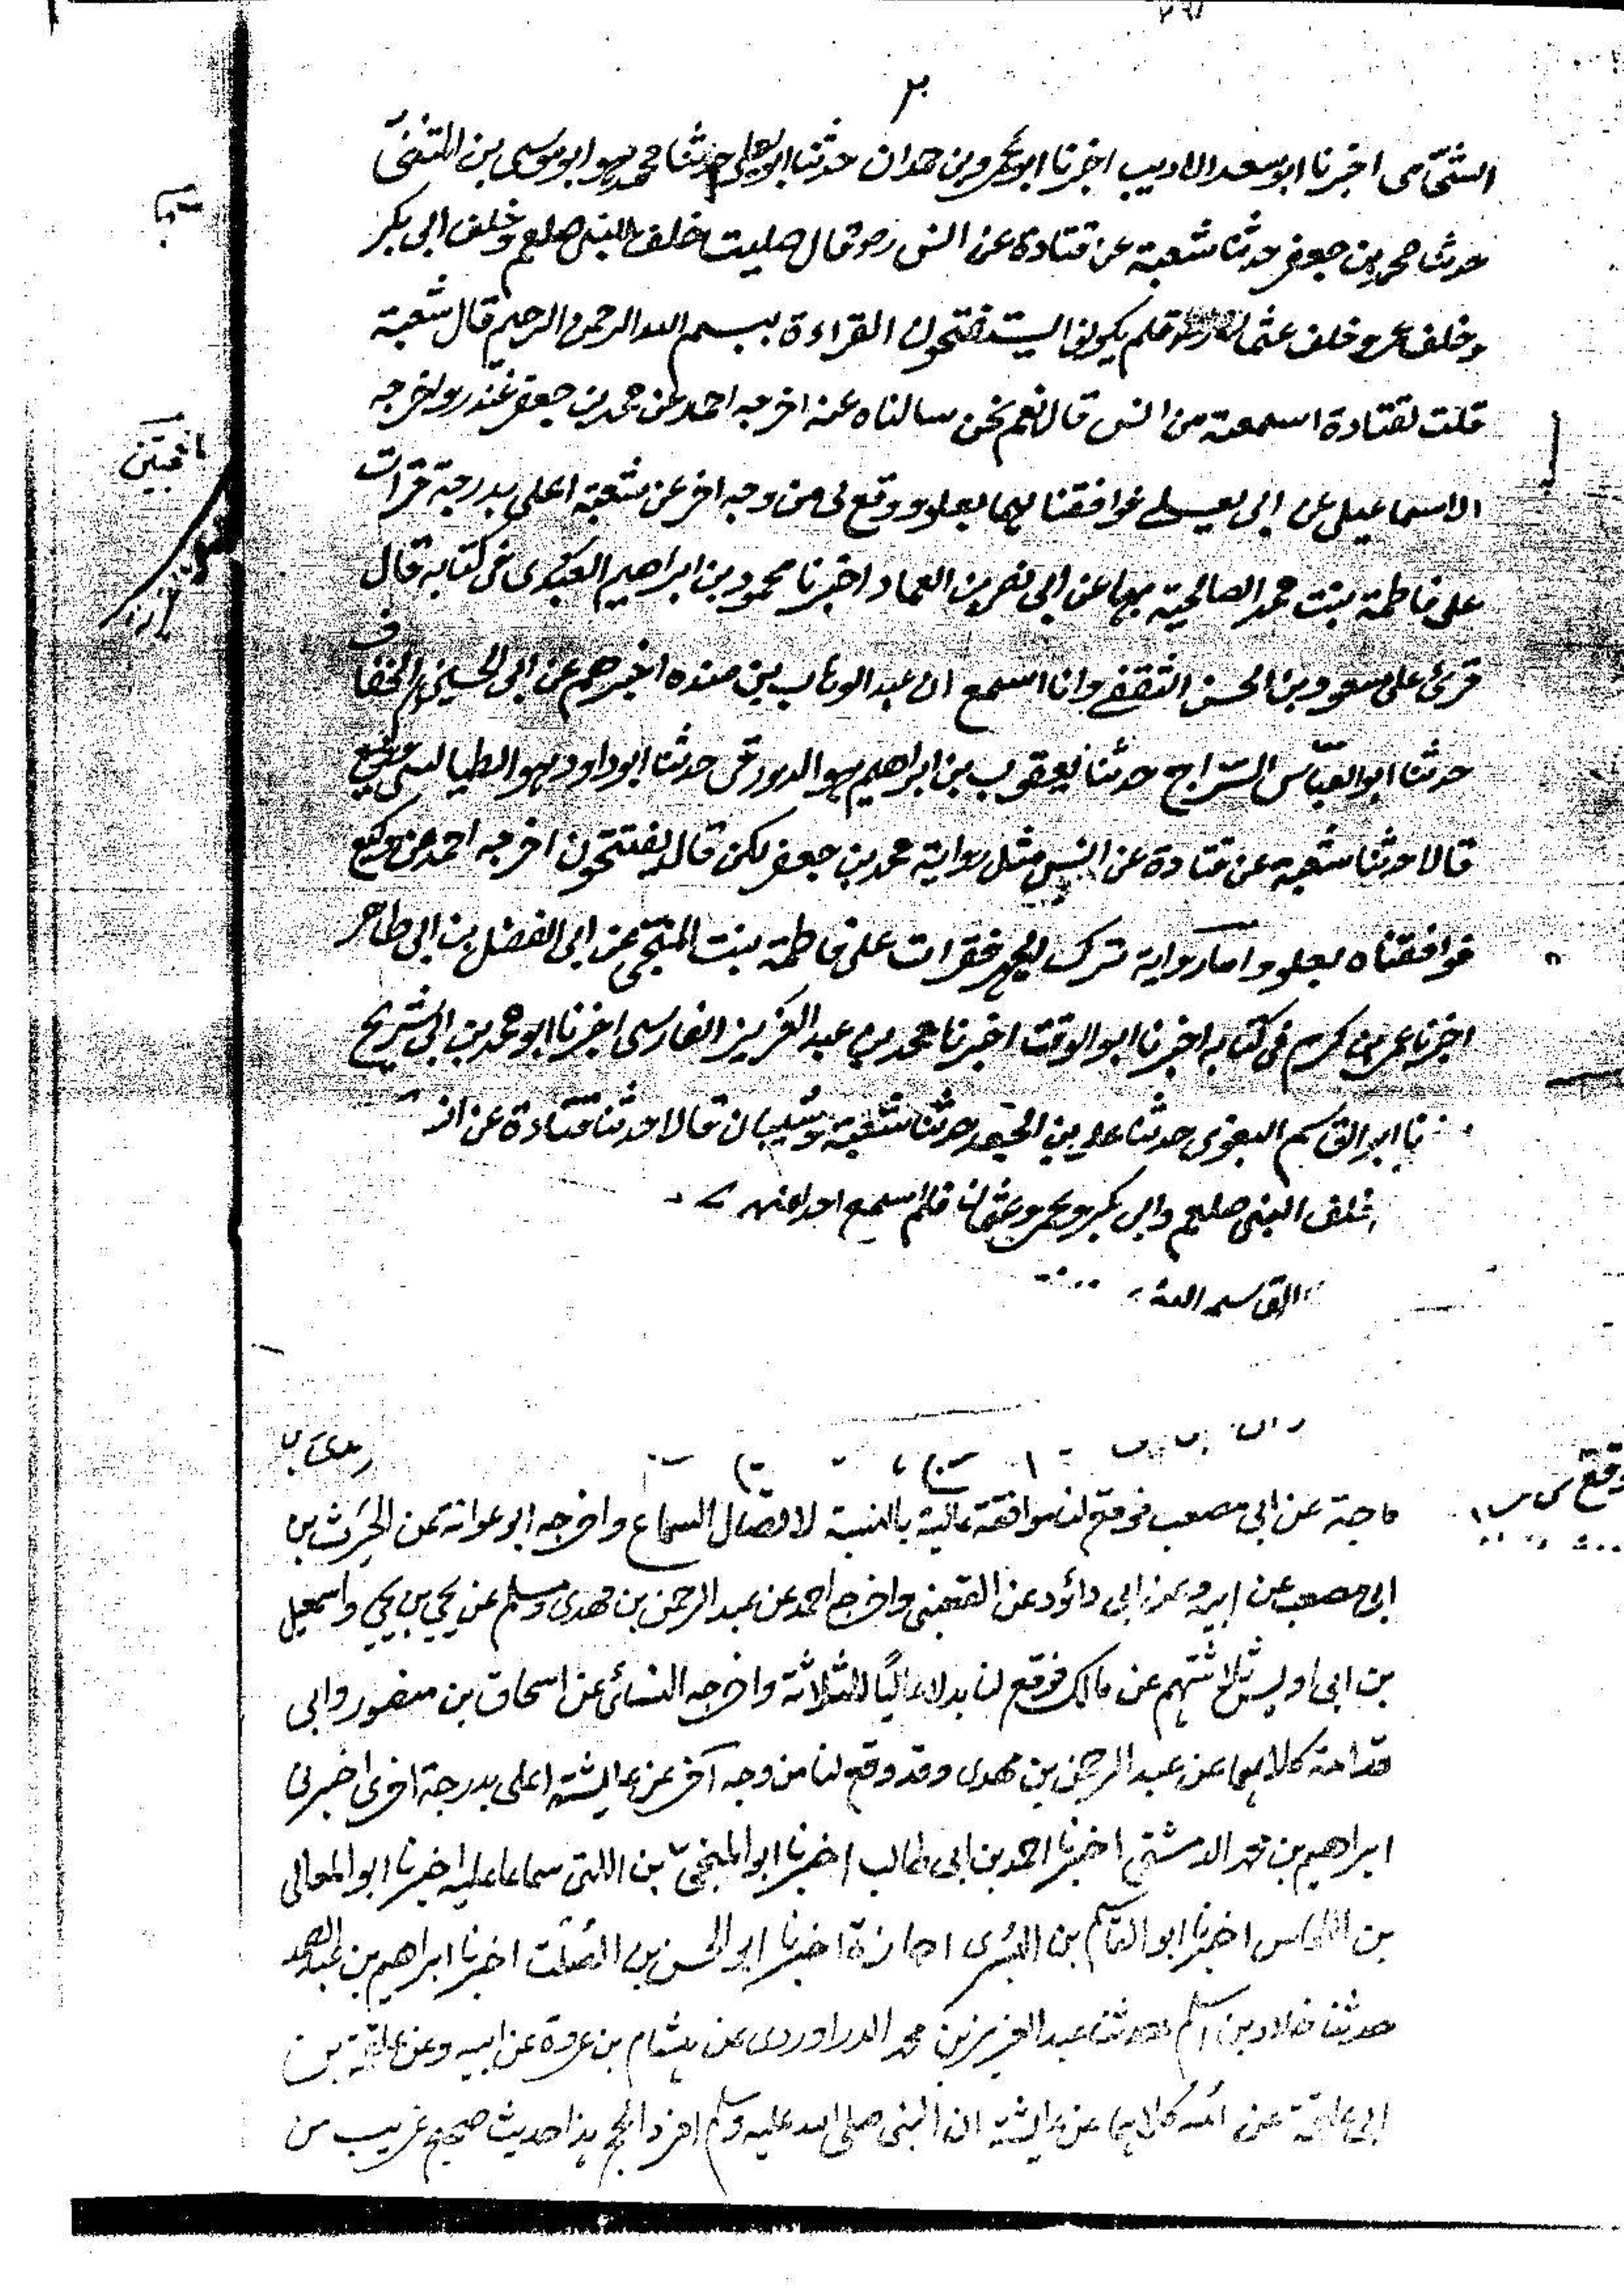 ٢
الشحّامى اخبرنا ابو سعد الاديب اخبرنا ابو عمرو بن حمدان حدثنا ابو يعلى حدثنا محمد هو ابو موسى بن المثنىّ
حدثنا محمد بن جعفر حدثنا شعبة عن قتادة عن انس رضـ قال صليت خلف النبى صلعم وخلف ابى بكر
وخلف عمر وخلف عثمان فلم يكونوا يستفتحون القراءة ببسم الله الرحمن الرحيم قال شعبة
قلت لقتادة اسمعته من انس قال نعم نحن سالناه عنه اخرجه احمد عن محمد بن جعفر غندر واخرجه
الاسماعيلى عن ابى يعلى فوافقنا هما بعلو ووقع لى من وجه اخر عن شعبة اعلى بدرجة قرات
على فاطمة بنت محمد الصالحية بها عن ابى نصر بن العماد اخبرنا محمود بن ابراهيم العبدى فى كتابه قال
قرئ على مسعود بن الحسن الثقفى وانا اسمع ان عبد الوهاب بن منده اخبرهم عن ابى الحسين الخفاف
حدثنا ابو العبّاس السّراج حدثنا يعقوب بن ابراهيم هو الدورقى حدثنا ابو داود هو الطيالسى
قالا حدثنا شعبة عن قتادة عن انس مثل رواية محمد بن جعفر لكن قال يفتتحون اخرجه احمد عن وكيع
فوافقناه بعلو واما رواية ترك الجهر فقرات على فاطمة بنت المنجى عن ابى الفضل بن ابى طاهر
اخبرنا عمر بن كرم فى كتابه اخبرنا ابو الوقت اخبرنا محمد بن عبد العزيز الفارسى اخبرنا ابو محمد بن ابى شريح
نا ابو القاسم البغوى حدثنا على بن الجعد حدثنا شعبة وشيبان قالا حدثنا قتادة عن
خلف النبى صلعم وابى بكر وعمر وعثمان فلم اسمع احدا منهم
القاسم
ماجة عن ابى مصعب فوقع لنا موافقة عالية بالنسبة لاتصال السماع واخرجه ابو عوانة عن الحرث بن
ابى مصعب عن ابيه وعن ابى دائود عن القعنبى واخرج احمد عن عبد الرحمن بن مهدى ومسلم عن يحيى بن يحيى واسمعيل
بن ابى اويس ثلاثتهم عن مالك فوقع لنا بدلا عاليًا للثلاثة واخرجه النسائى عن اسحاق بن منصور وابى
قدامة كلاهما عن عبد الرحمن بن مهدى وقد وقع لنا من وجه آخر عن عايشة اعلى بدرجة اخرى اخبرنى
ابراهيم بن محمد الدمشقى اخبرنا احمد بن ابى طالب اخبرنا ابو المنجىّ بن اللتى سماعا عليه اخبرنا ابو المعالى
بن النحاس اخبرنا ابو القاسم بن البسرى اجازة اخبرنا ابو الحسن بن الصلت اخبرنا ابراهيم بن عبد الصمد
حدثنا خلاد بن اسلم حدثنا عبد العزيز بن محمد الدراوردى عن هشام بن عروة عن ابيه وعن علقمة بن
ابى علقمة عن امه كلاهما عن عايشة ان النبى صلى الله عليه وسلم افرد الحج هذا حديث صحيح غريب من